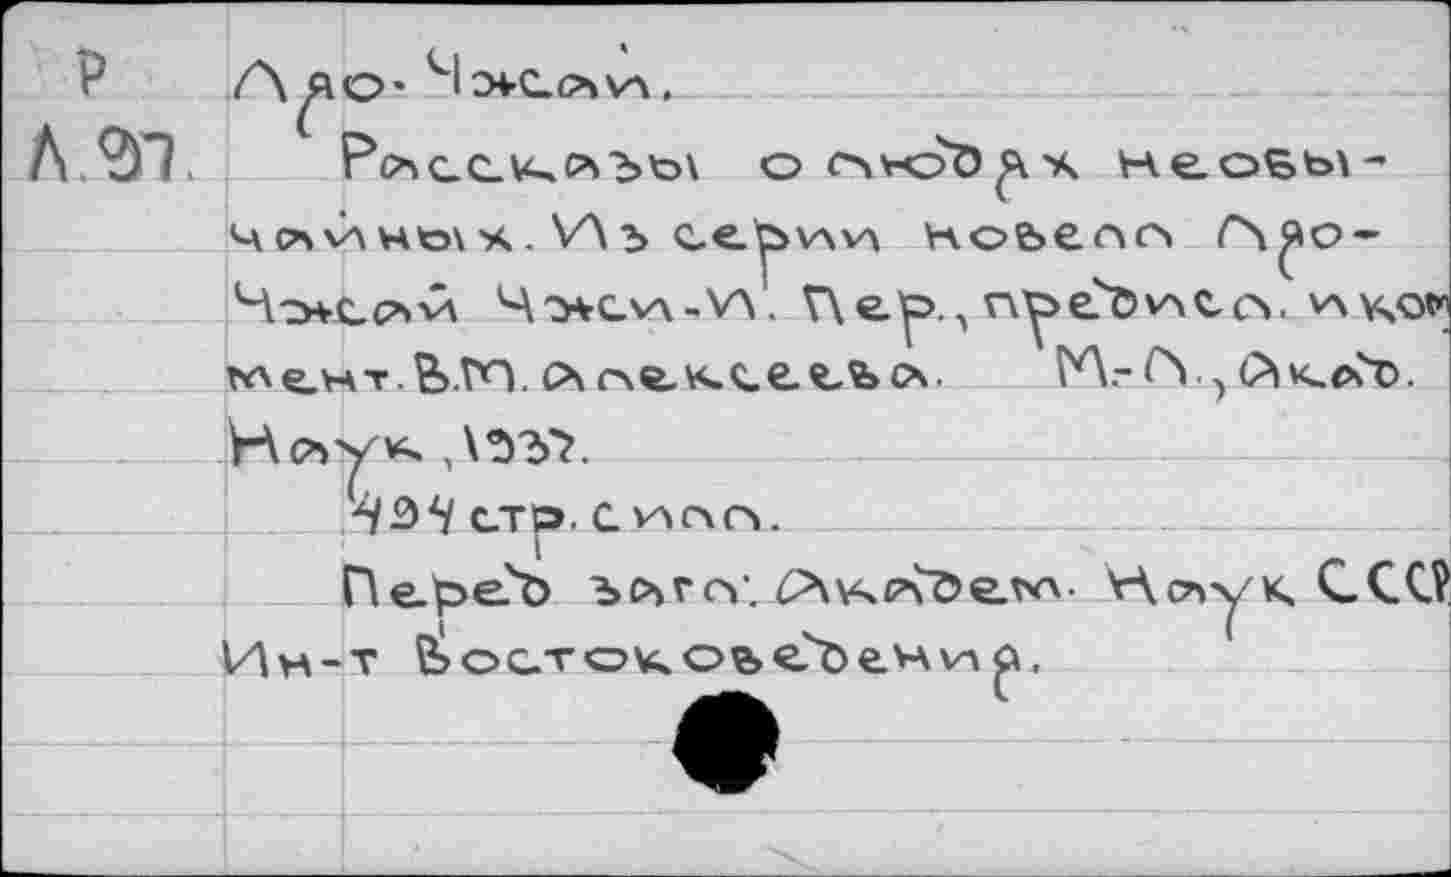 Р
Л.97.
Ляо-Чжсай.
Рассказы о людях необы-
чайных. Из серии новелл Ляо-
Чжсай Чжси-И. Пер., предисл. и ком
мент. В.М. Алексеева. М.-Л., Акад.
Наук, 1937.
494 стр. с илл.
Перед загл: Академ. Наук СССР
Ин-т Востоковедения.